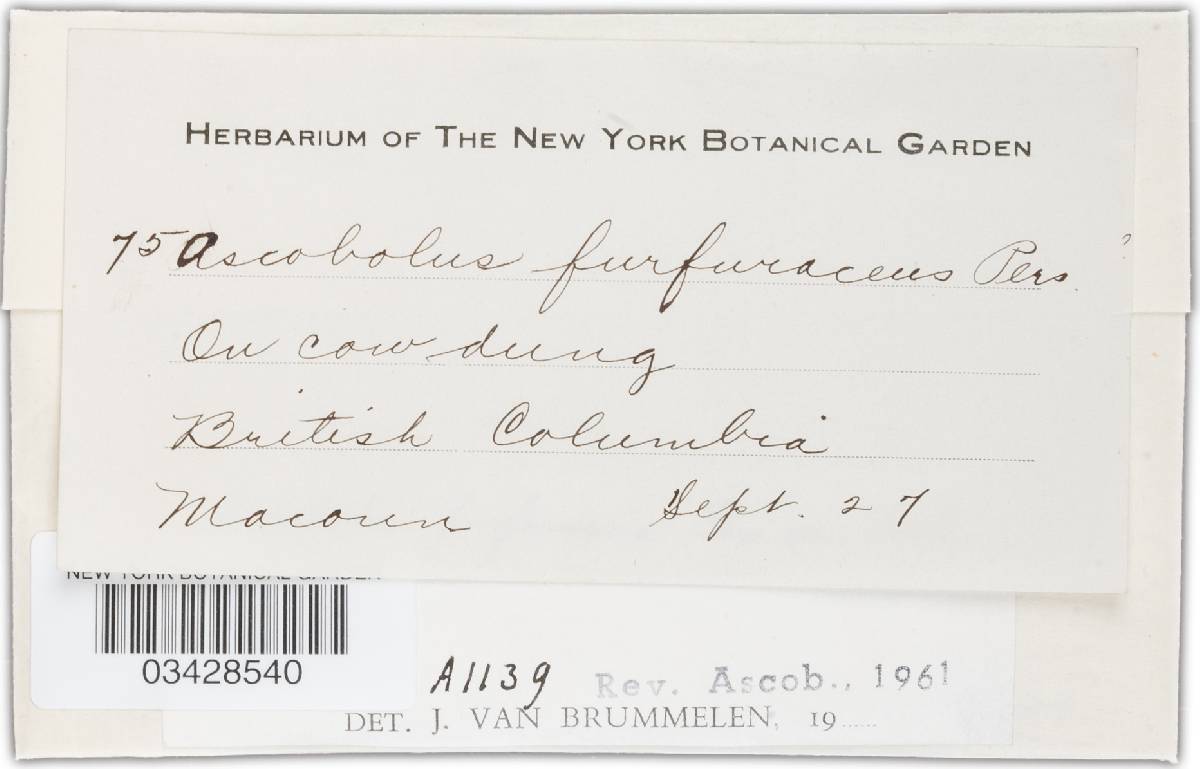 HERBARIUM OF THE NEW YORK BOTANICAL GARDEN
75 Ascobolus furfuraceus Pers.
On cow dung
British Columbia
Macoun Sept. 27
NEW YORK BOTANICAL GARDEN
03428540
A1139 Rev. Ascob., 1961
DET. J. VAN BRUMMELEN, 19......